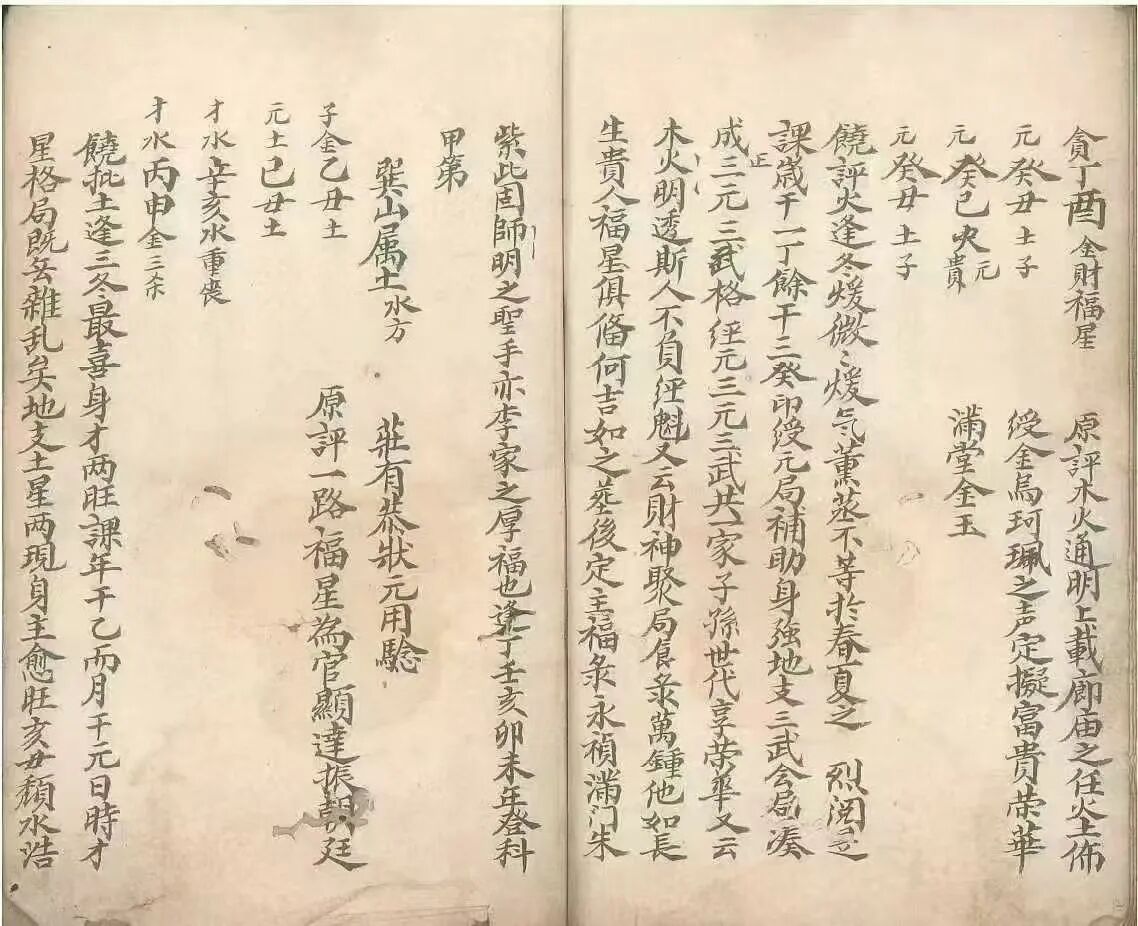 貪丁酉金財福星　原評木火通明上載廊庙之任火土佈
元癸丑土子　綬金烏珂珮之声定擬富貴荣華
元癸巳火貴元　滿堂金玉
元癸丑土子
饒評火逢冬煖微〻煖气薰蒸不等於春夏之　烈阅
課歲干一丁餘干三癸印綬元局補助身强地支三武会局湊
正
成三元三武格經元三元三武共一家子孫世代享荣華又云
木火明透斯人不負經魁又云財神聚局食彔萬鍾他如長
生貴人福星俱俻何吉如之塟後定主福彔永禎滿门朱
紫此固師明之聖手亦李家之厚福也逢丁壬亥卯未年登科
甲第
巽山属土水方　莊有恭狀元用騐
子金乙丑土　原評一路福星為官顯達振朝廷
元土己丑土
才水辛亥水重丧
才水丙申金三杀
饒批土逢三冬最喜身才两旺課年干乙而月干元日時才
星格局既無雜乱矣地支土星两現身主愈旺亥丑頪水浩